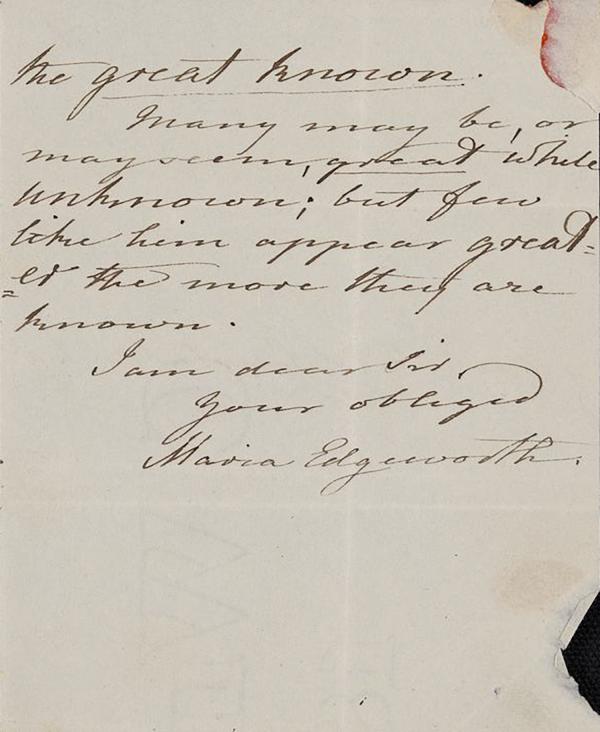 the great known.
Many may be, or
may seem, great while
unknown; but few
like him appear great=
=er the more they are
known.
I am dear Sir,
your obliged
Maria Edgeworth.